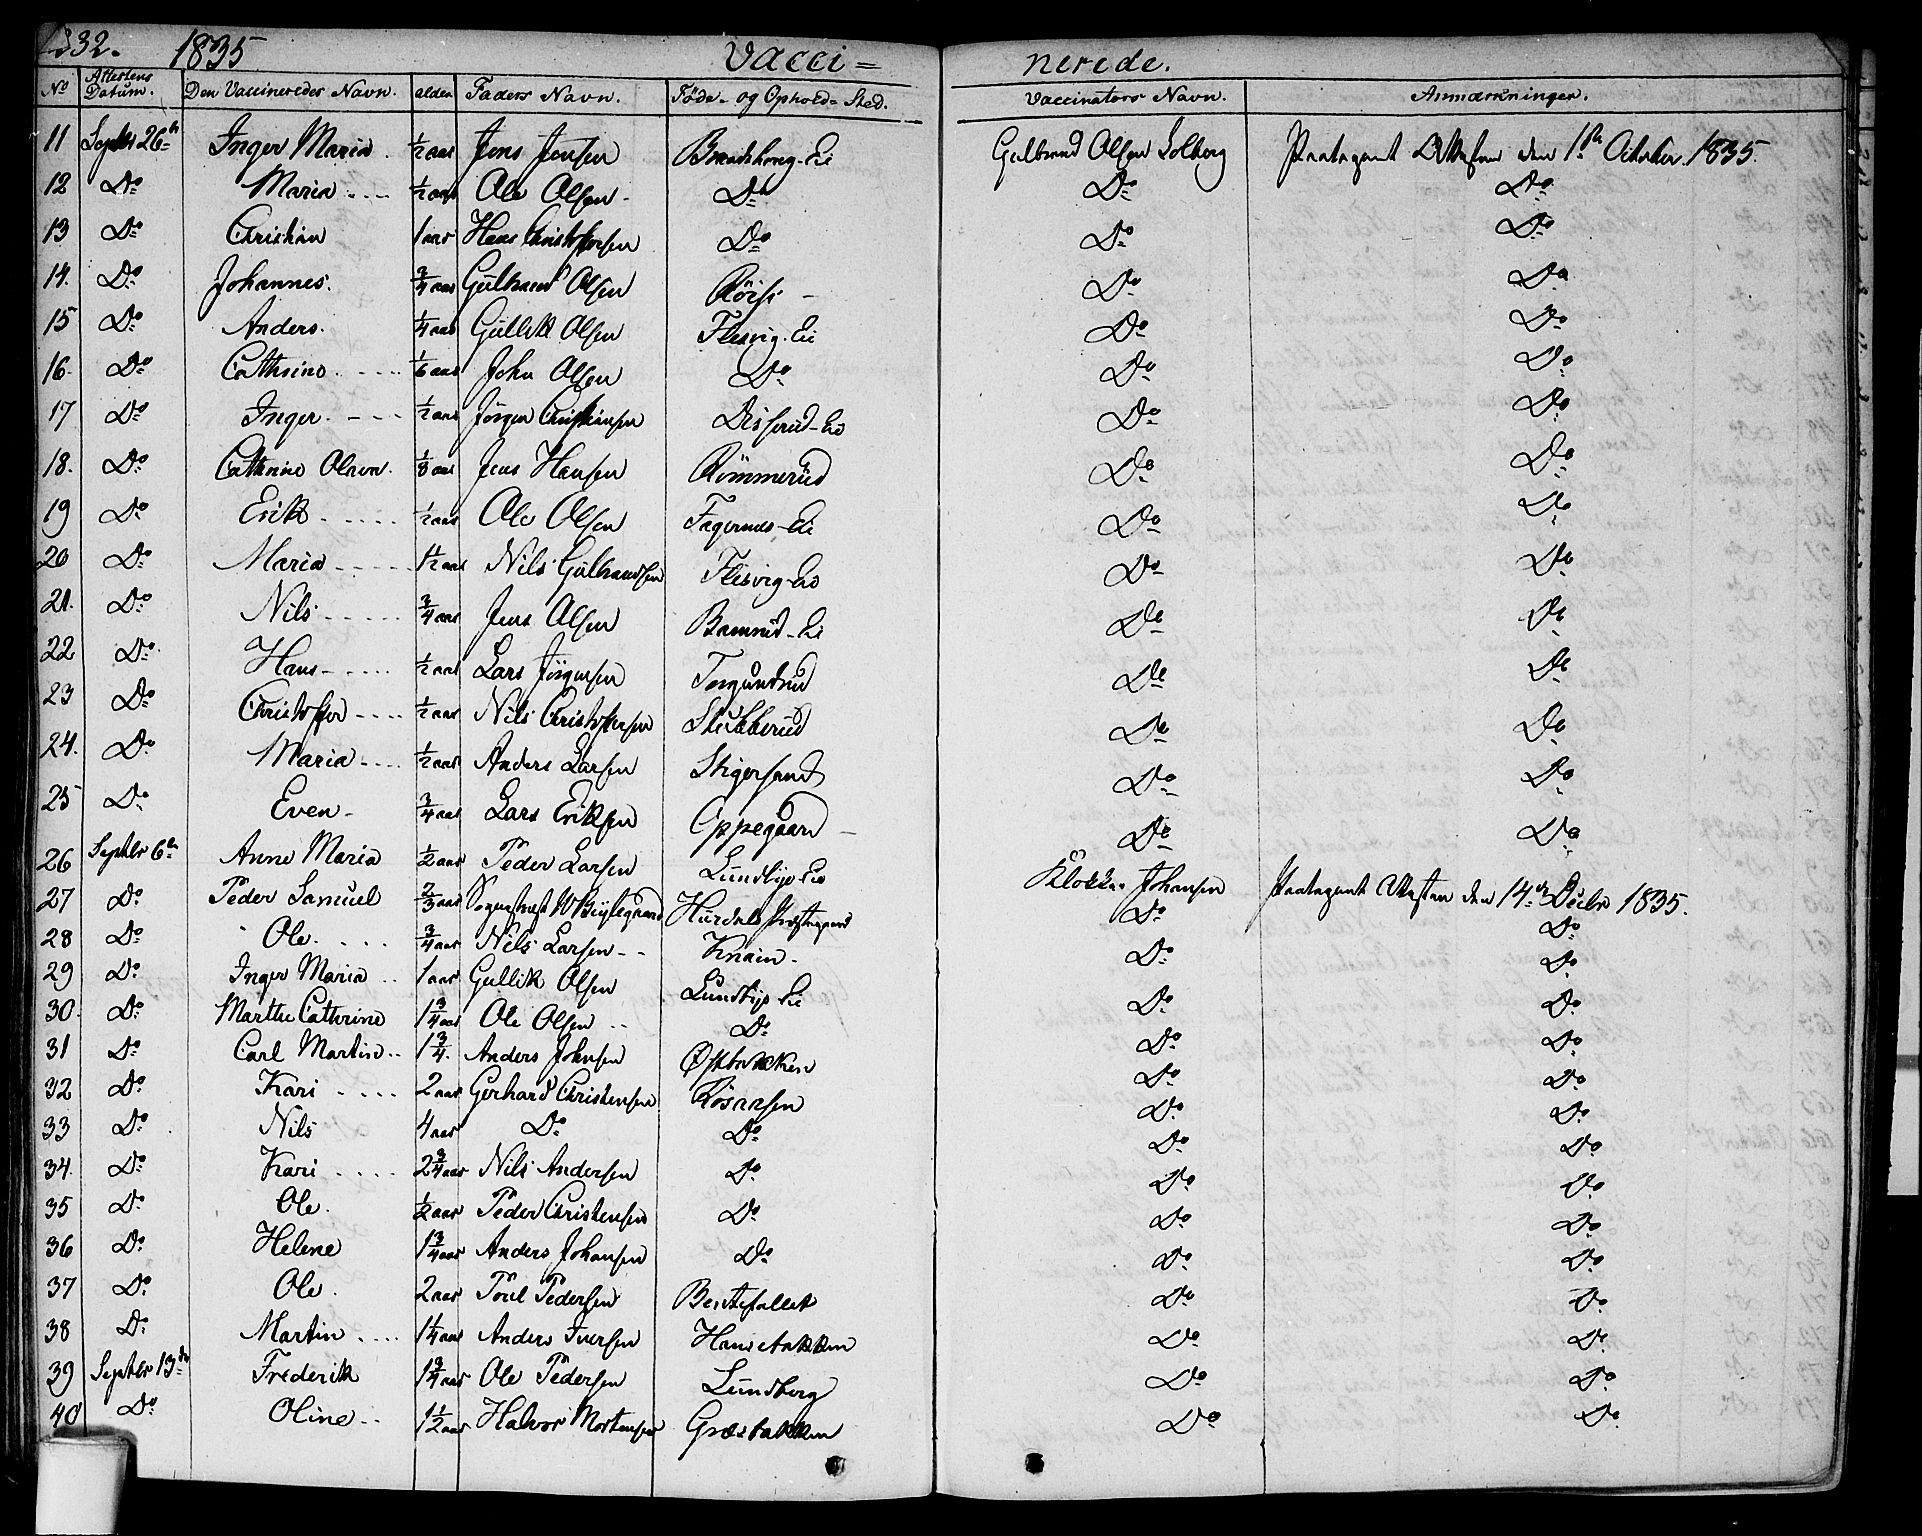 332. 1835 Vacci= nerede.
No Attestens Datum. Den Vaccineredes Navn. alder Faders Navn. Føde- og Ophold=Sted. Vaccinators Navn. Anmærkninger.
11 Septbr 26de Inger Maria. 1/2 aar Jens Jensen Brandsherg-Ei Gulbrand Olsen Solberg Paategnet Attesten den 1ste October 1835.
12 Do Maria 1/2 aar Ole Olsen Do Do Do
13 Do Christian 1 aar Hans Christophersen Do Do Do
14. Do Johannes. 3/4 aar Gulbrand Olsen Röise Do Do
15 Do Anders. 1/4 aar Gullik Olsen Flesvig-Ei Do Do
16. Do Cathrine 1/6 aar John Olsen Do Do Do
17 Do Inger 1/2 aar Jörgen Christiansen Diserud-Ei Do Do
18. Do Cathrine Olava. 1/8 aar Jens Hansen Römmerud Do Do
19 Do Erik 1/2 aar Ole Olsen Fagernes-Ei Do Do
20 Do Maria 1 1/2 aar Nils Gulbrandsen Flesvig-Ei Do Do
21. Do Nils 3/4 aar Jens Olsen Bamrud-Ei Do Do
22 Do Hans 1/2 aar Lars Jörgensen Torgundrud Do Do
23 Do Christoffer 1/2 aar Nils Christophersen Stubberud Do Do
24. Do Maria 1/2 aar Anders Larsen Stigersand Do Do
25 Do Even 3/4 aar Lars Eriksen Oppegaard Do Do
26 Septbr 6te Anne Maria 1/2 aar Peder Larsen Lundbye-Ei Klokker Johansen Paategnet Attesten den 14de Decbr 1835.
27 Do Peder Samuel 2/3 aar Sognepræst W Bugtegaard Hurdals Præstegaard Do Do
28 Do Ole. 3/4 aar Nils Larsen Knain Do Do
29 Do Inger Maria 1 aar Gullik Olsen Lundbye-Ei Do Do
30. Do Marthe Cathrine 1 3/4 aar Ole Olsen Do Do Do
31 Do Carl Martin 1 3/4. Anders Johnsen Østbakken Do Do
32 Do Kari 2 aar Gerhard Christensen Rösaasen Do Do
33 Do Nils 4 aar Do Do Do Do
34. Do Kari 2 3/4 aar Nils Andersen Do Do Do
35 Do Ole. 1/2 aar Peder Christensen Do Do Do
36 Do Helene 1 3/4 aar Anders Johansen Do Do Do
37 Do Ole. 2 aar Poul Pedersen Bentefallet Do Do
38 Do Martin 1 1/4 aar Anders Iversen Hansebakken Do Do
39 Septbr 13de Frederik 1 3/4 aar Ole Pedersen Lundberg Do Do
40 Do Oline 1 1/2 aar Halvor Mortensen Græsbakken Do Do